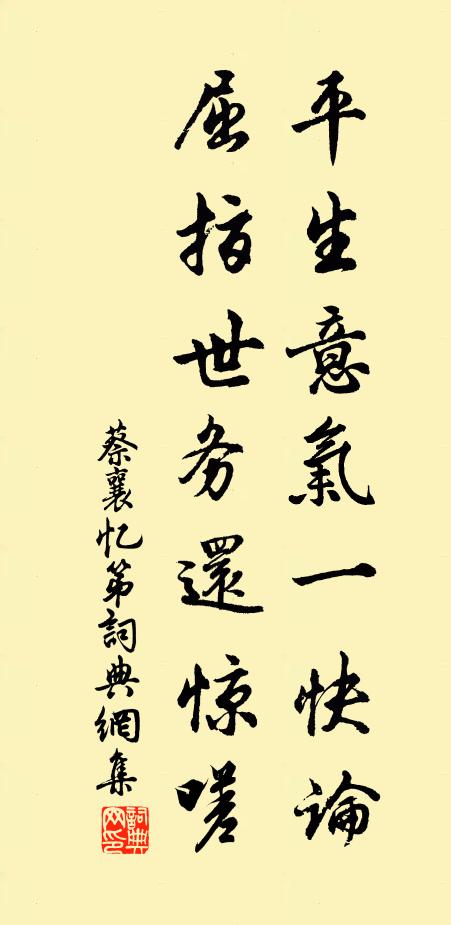 平生意氣一快論
屈指世务還惊嗟
蔡襄忆弟詞典網集
詞典网印